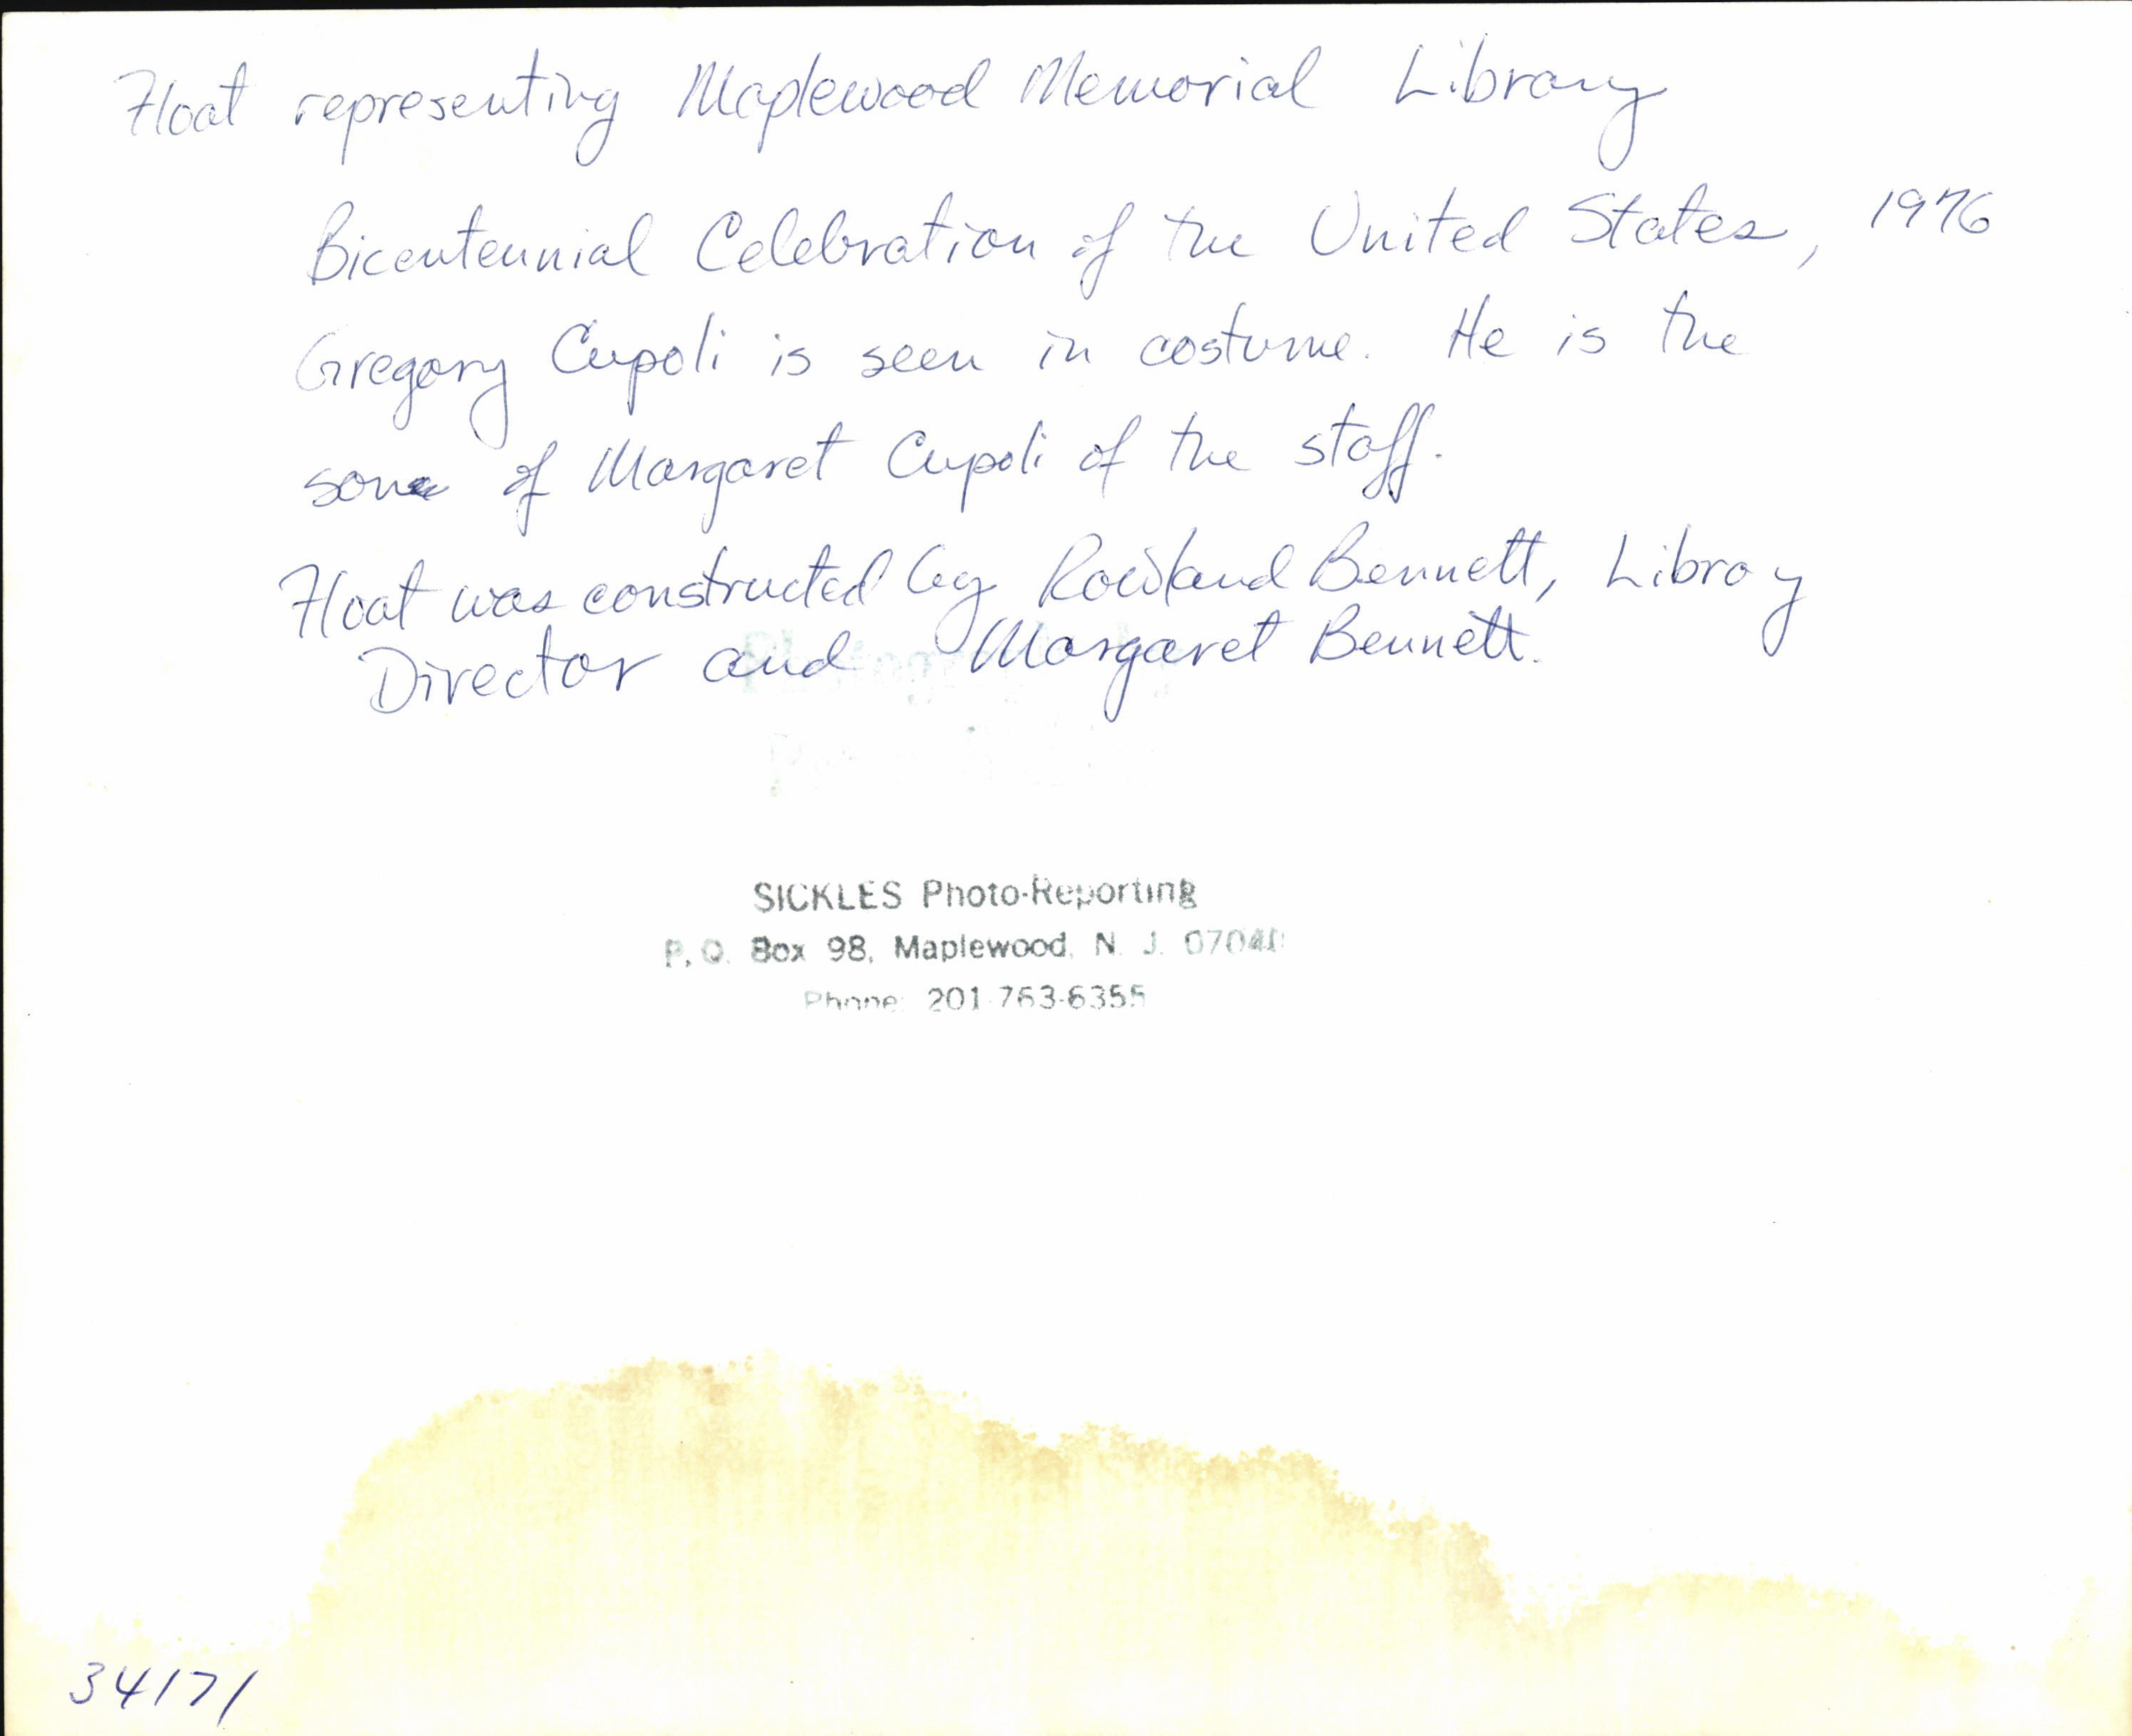 Float representing Maplewood Memorial Library
Bicentennial Celebration of the United States, 1976
Gregory Cupoli is seen in costume. He is the
son of Margaret Cupoli of the staff.
Float was constructed by Rowland Bennett, Libray
Director and Margaret Bennett.
SICKLES Photo-Reporting
P. O. Box 98, Maplewood, N. J. 07040
Phone: 201-763-6355
34171